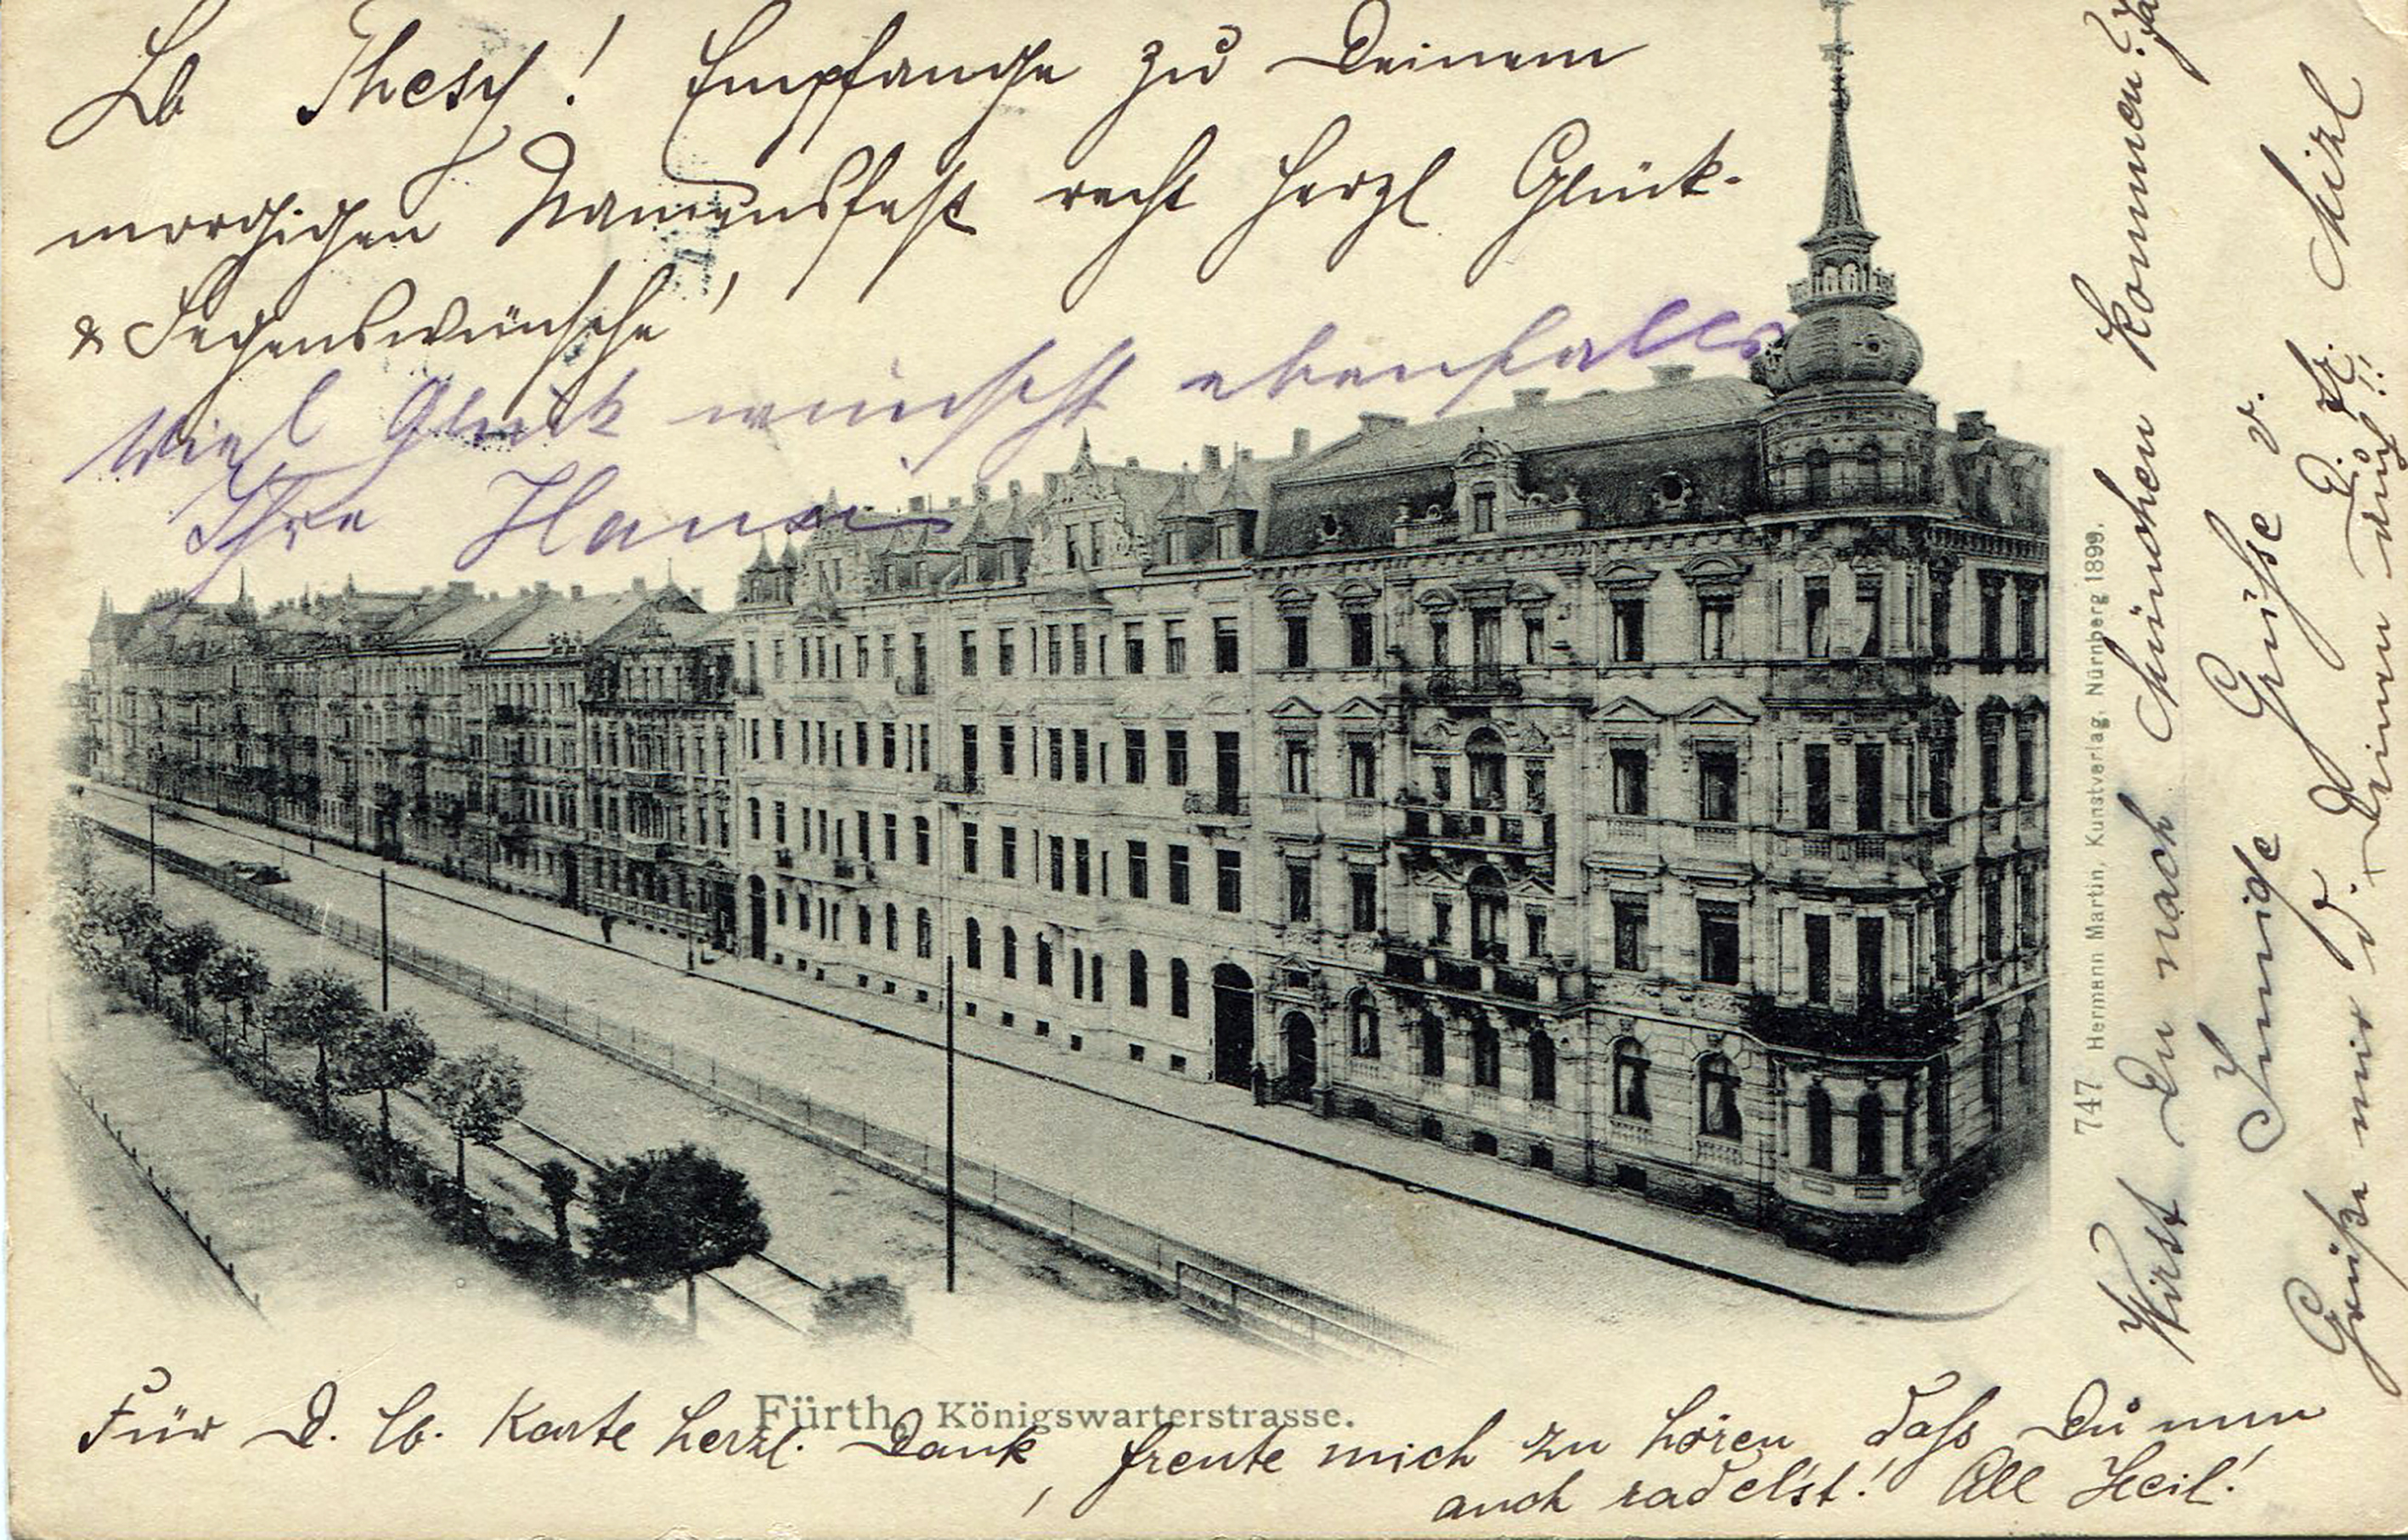 Lb Thesy! Empfange zu Deinem
morgigen Namensfest recht herzl Glück-
& Segenswünsche!
Viel Glück wünscht ebenfalls
Ihre Hansi
Fürth, Königswarterstrasse.
Für D. lb. Karte herzl. Dank, freute mich zu hören dass Du nun
auch radelst! All Heil!
747 Hermann Martin, Kunstverlag, Nürnberg 1899.
Wirst Du nach München kommen?
Innige Grüsse v.
D. Fr. Mizl
Grüße mir d.